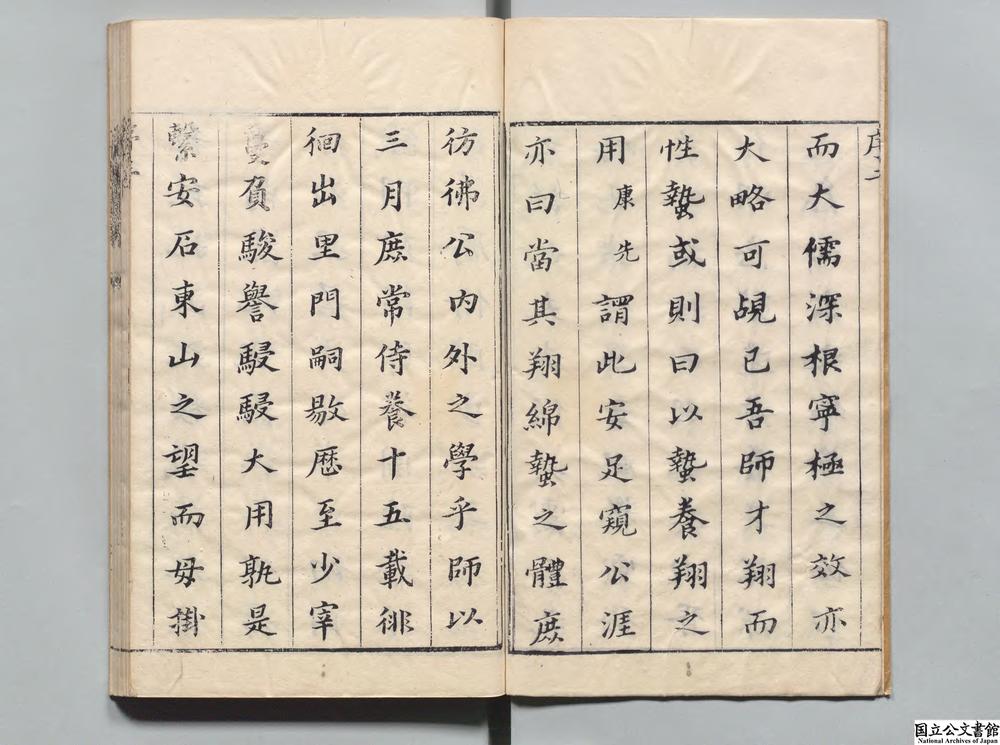 序二
而大儒深根寧極之效亦
大略可覘已吾師才翔而
性蟄或則曰以蟄養翔之
用康先謂此安足窺公涯
亦曰當其翔綿蟄之體庶
彷彿公內外之學乎師以
三月庶常侍養十五載徘
徊出里門嗣敭歷至少宰
負駿譽駸駸大用孰是
繫安石東山之望而毋掛
国立公文書館
National Archives of Japan